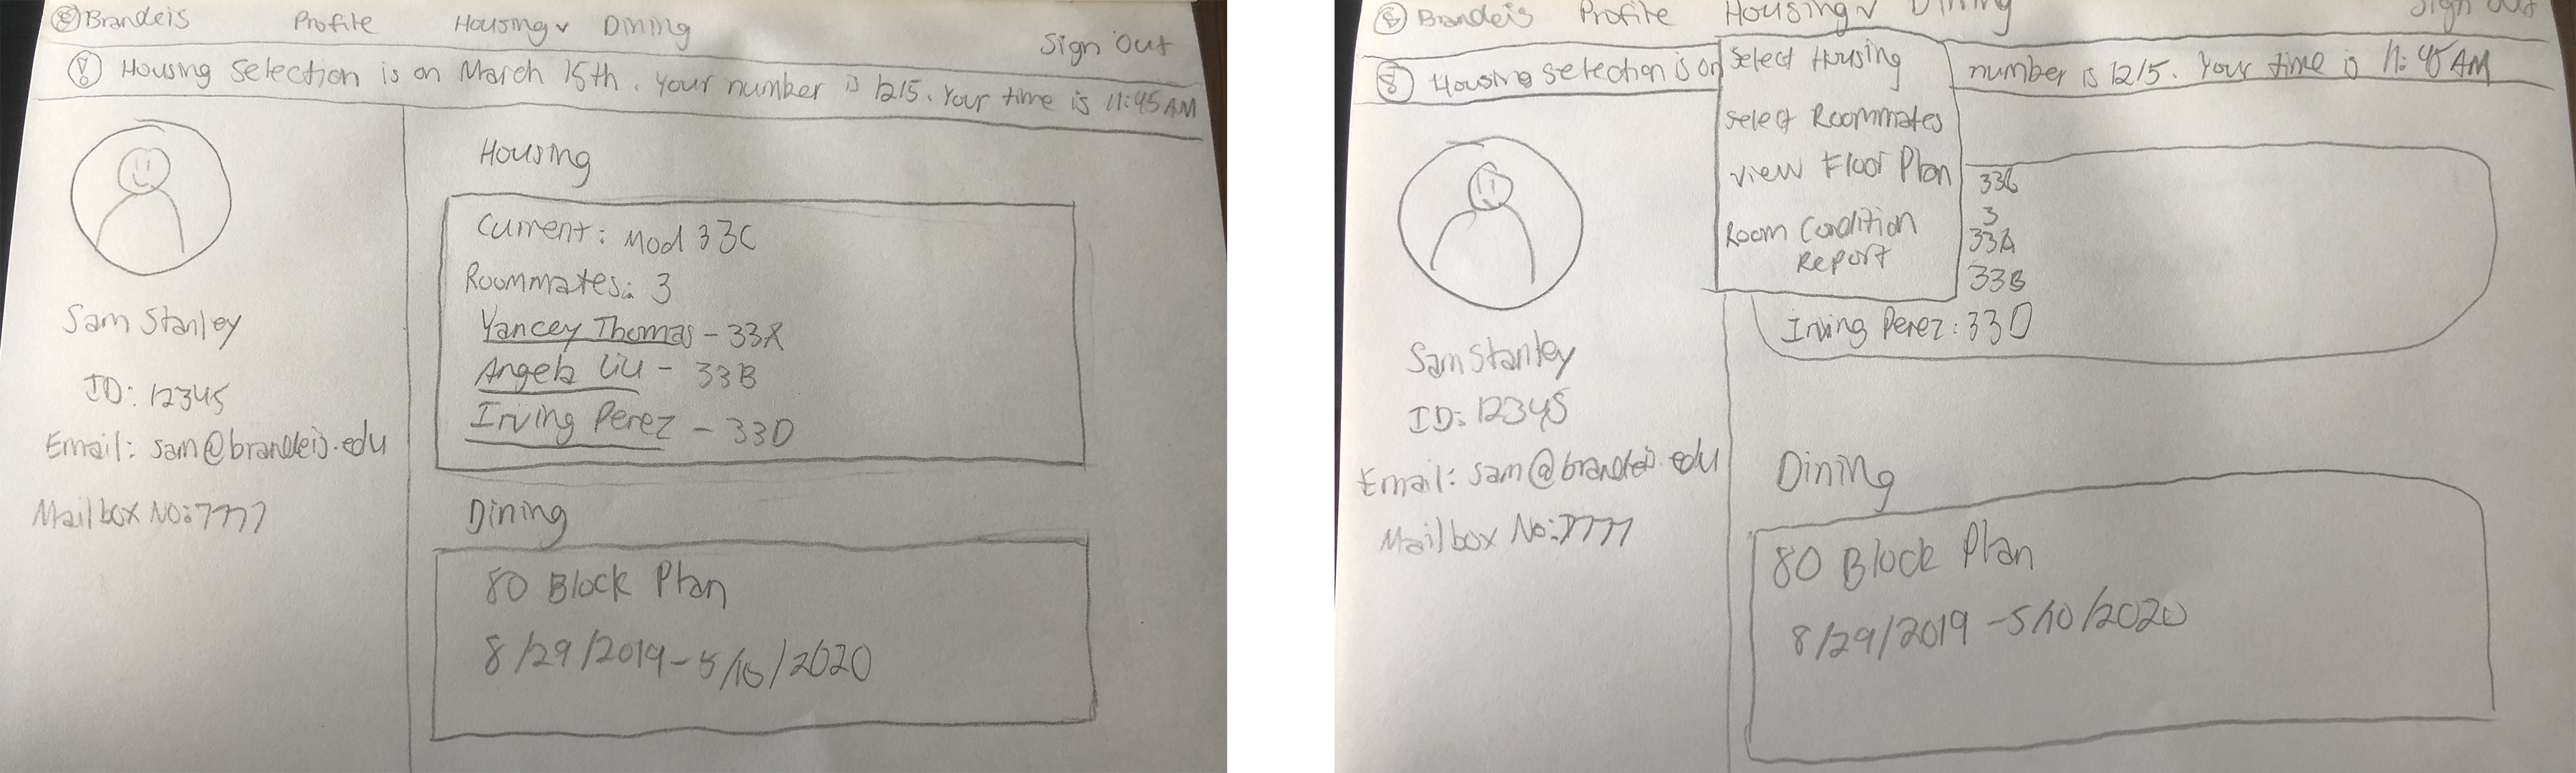 Brandeis Profile Housing v Dining Sign Out
! Housing Selection is on March 15th. Your number is 1215. Your time is 11:45 AM
Sam Stanley
ID: 12345
Email: sam@brandeis.edu
Mailbox No: 7777
Housing
Current: Mod 33C
Roommates: 3
Yancey Thomas - 33A
Angela Liu - 33B
Irving Perez - 33D
Dining
80 Block Plan
8/29/2019 - 5/10/2020
Brandeis Profile Housing v Dining Sign Out
Housing selection is on number is 1215. Your time is 11:45 AM
Select Housing
Select Roommates
View Floor Plan
Room Condition
Report
33C
3
33A
33B
Irving Perez: 33D
Sam Stanley
ID: 12345
Email: sam@brandeis.edu
Mailbox No: 7777
Dining
80 Block Plan
8/29/2019 - 5/10/2020